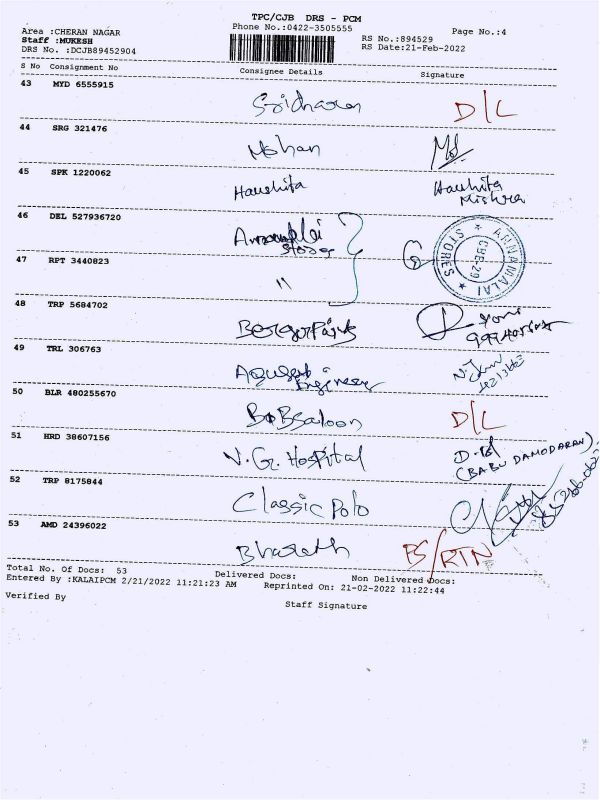 TPC/CJB DRS - PCM
Area :CHERAN NAGAR Phone No.:0422-3505555 Page No.:4
Staff :MUKESH RS No.:894529
DRS No.:DCJB89452904 RS Date:21-Feb-2022
S No Consignment No Consignee Details Signature
43 MYD 6555915 Sridharan D/C
44 SRG 321476 Mohan
45 SPK 1220062 Haushita Haushita Mishra
46 DEL 527936720 Annamalai Stores ANNAMALAI STORES CBE-29
47 RPT 3440823 "
48 TRP 5684702 Berger Paints
49 TRL 306763 Engineers
50 BLR 480255670 BoBsaloon D/C
51 HRD 38607156 N.G. Hospital (BABU DAMODARAN)
52 TRP 8175844 Classic Polo
53 AMD 24396022 Bharath PS/RTN
Total No. of Docs: 53 Delivered Docs: Non Delivered Docs:
Entered By :KALAIPCM 2/21/2022 11:21:23 AM Reprinted On: 21-02-2022 11:22:44
Verified By Staff Signature